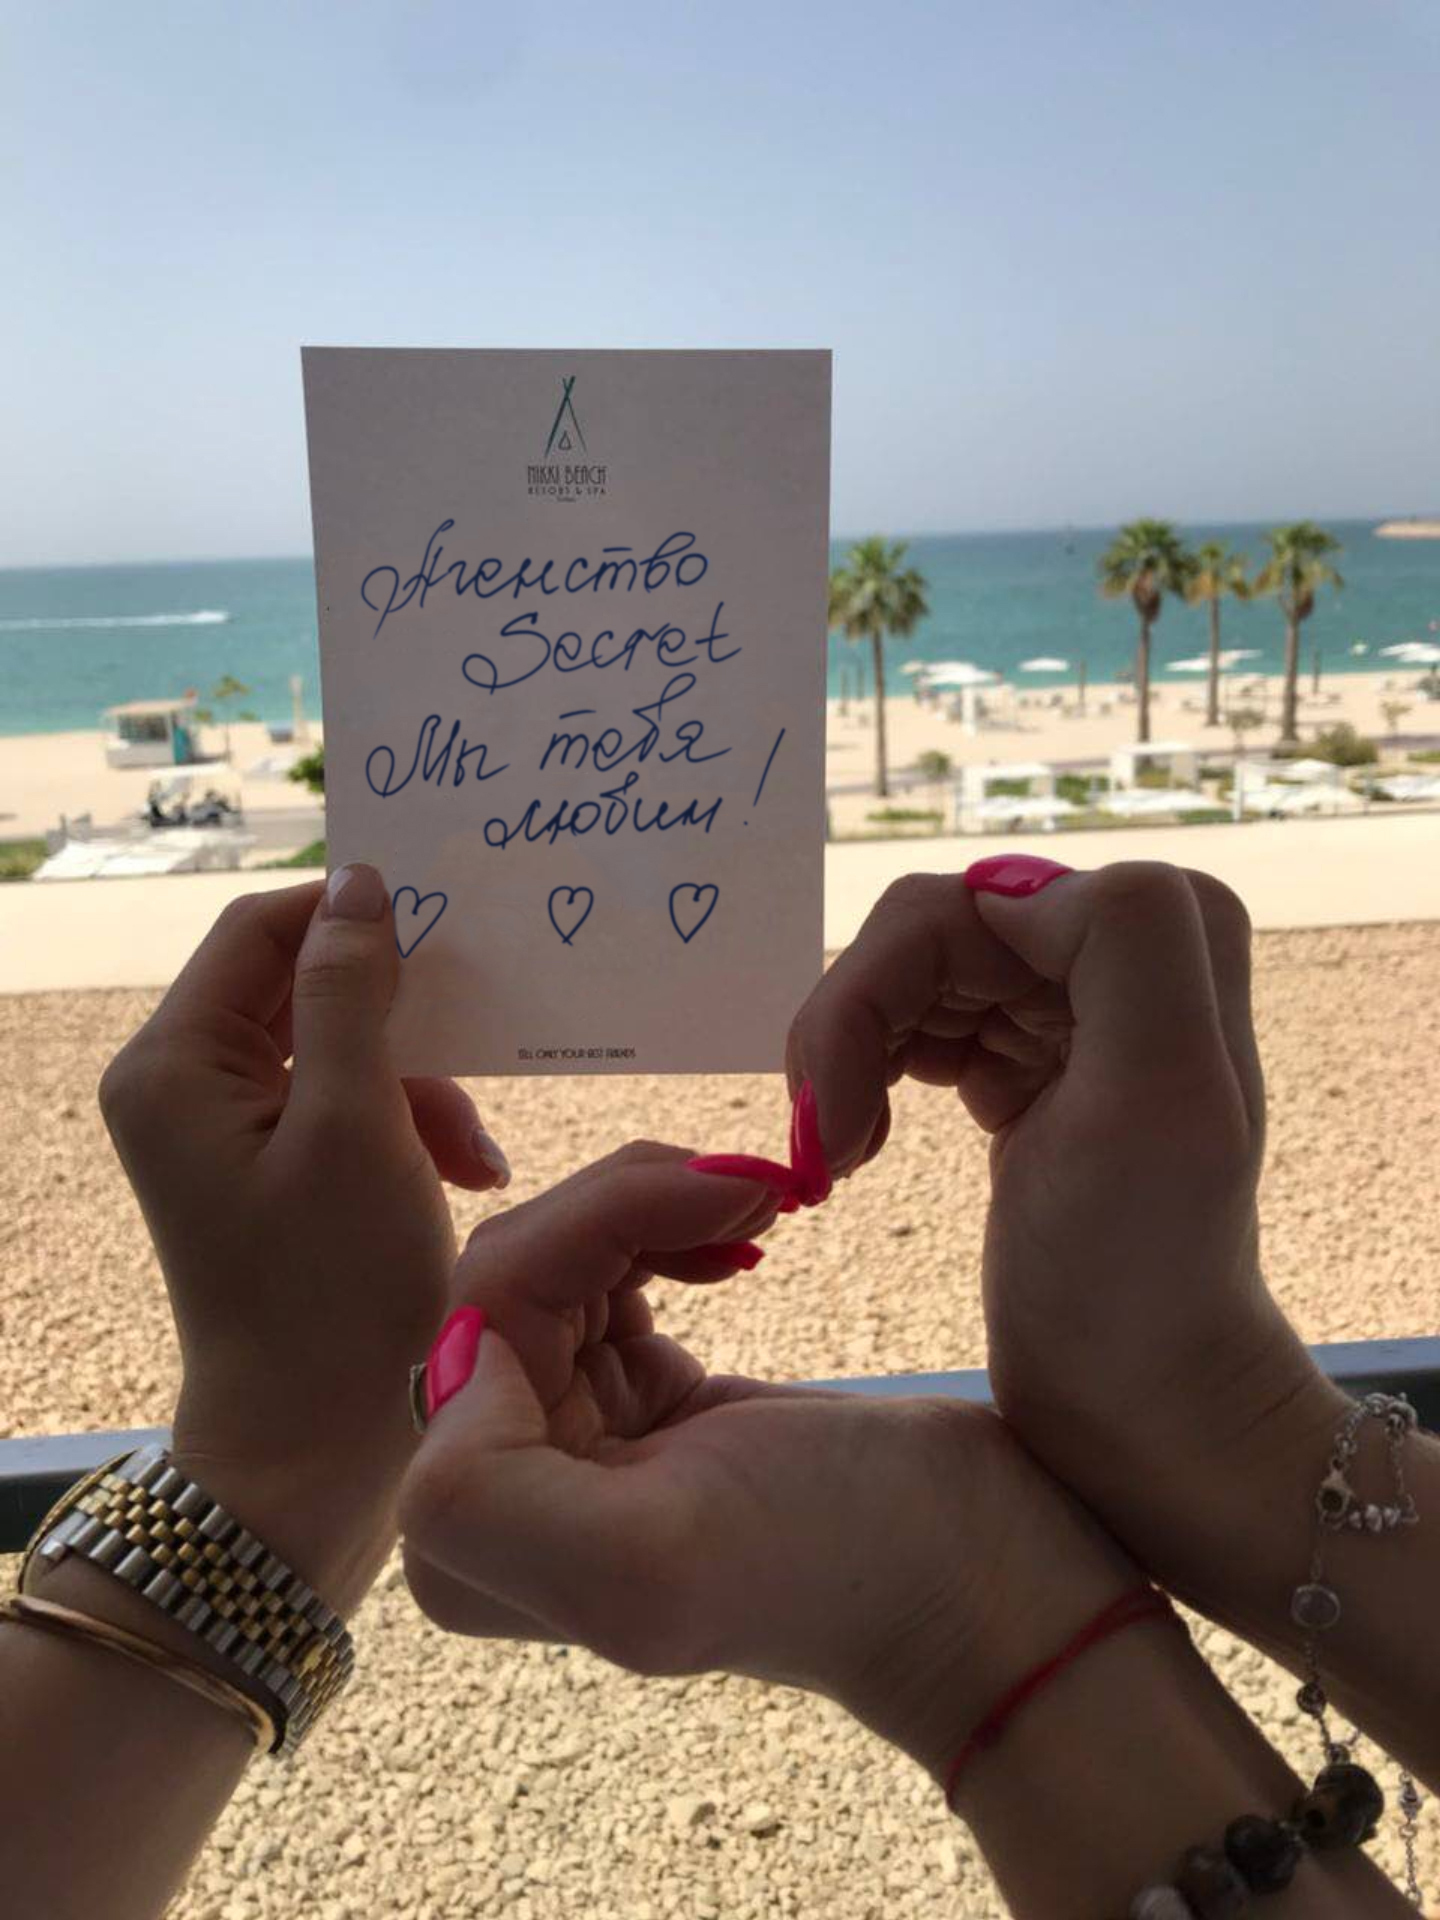 NIKKI BEACH
RESORT & SPA
Агенство
Secret
Мы тебя
любим!
TELL ONLY YOUR BEST FRIENDS